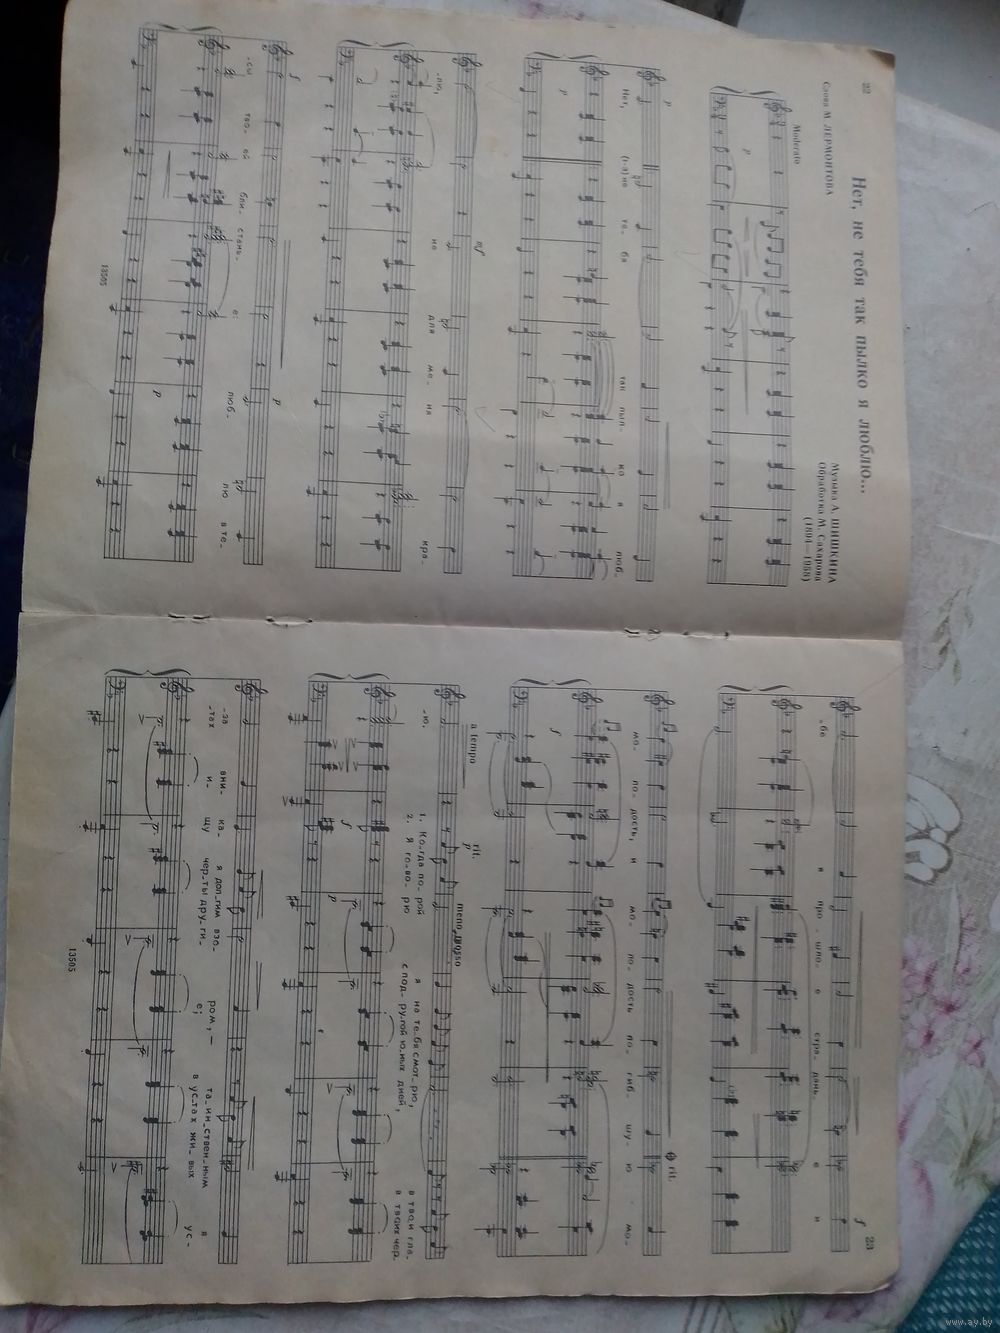 22
Нет, не тебя так пылко я люблю...
Слова М. ЛЕРМОНТОВА
Музыка А. ШИШКИНА
Обработка М. Сахарова
(1894—1958)
Moderato
p
p
Нет, (1-я) не те_ бя так пыл_ ко я люб_
p
mf
_лю, не для ме_ ня кра_
f
p
_сы тво_ ей бли_ стань_ е: люб_ лю в те_
p
13505
23
f
_бе я про_ шло_ е стра_ дань_ е и
rit.
мо_ ло_ дость, и мо_ ло_ дость по_ гиб_ шу_ ю мо_
f
a tempo
rit.
p
meno mosso
_ю.
1. Ко_гда по_ рой я на те_бя смот_рю, в твои гла_
2. Я го_во_ рю с под_ру_гой ю_ных дней, в твоих чер_
f
p
_за вни_ ка_ я дол_гим взо_ ром, — та_ин_ствен_ным я
_тах и_ щу чер_ты дру_ги_ е; в ус_тах жи_вых ус_
13505
www.ay.by